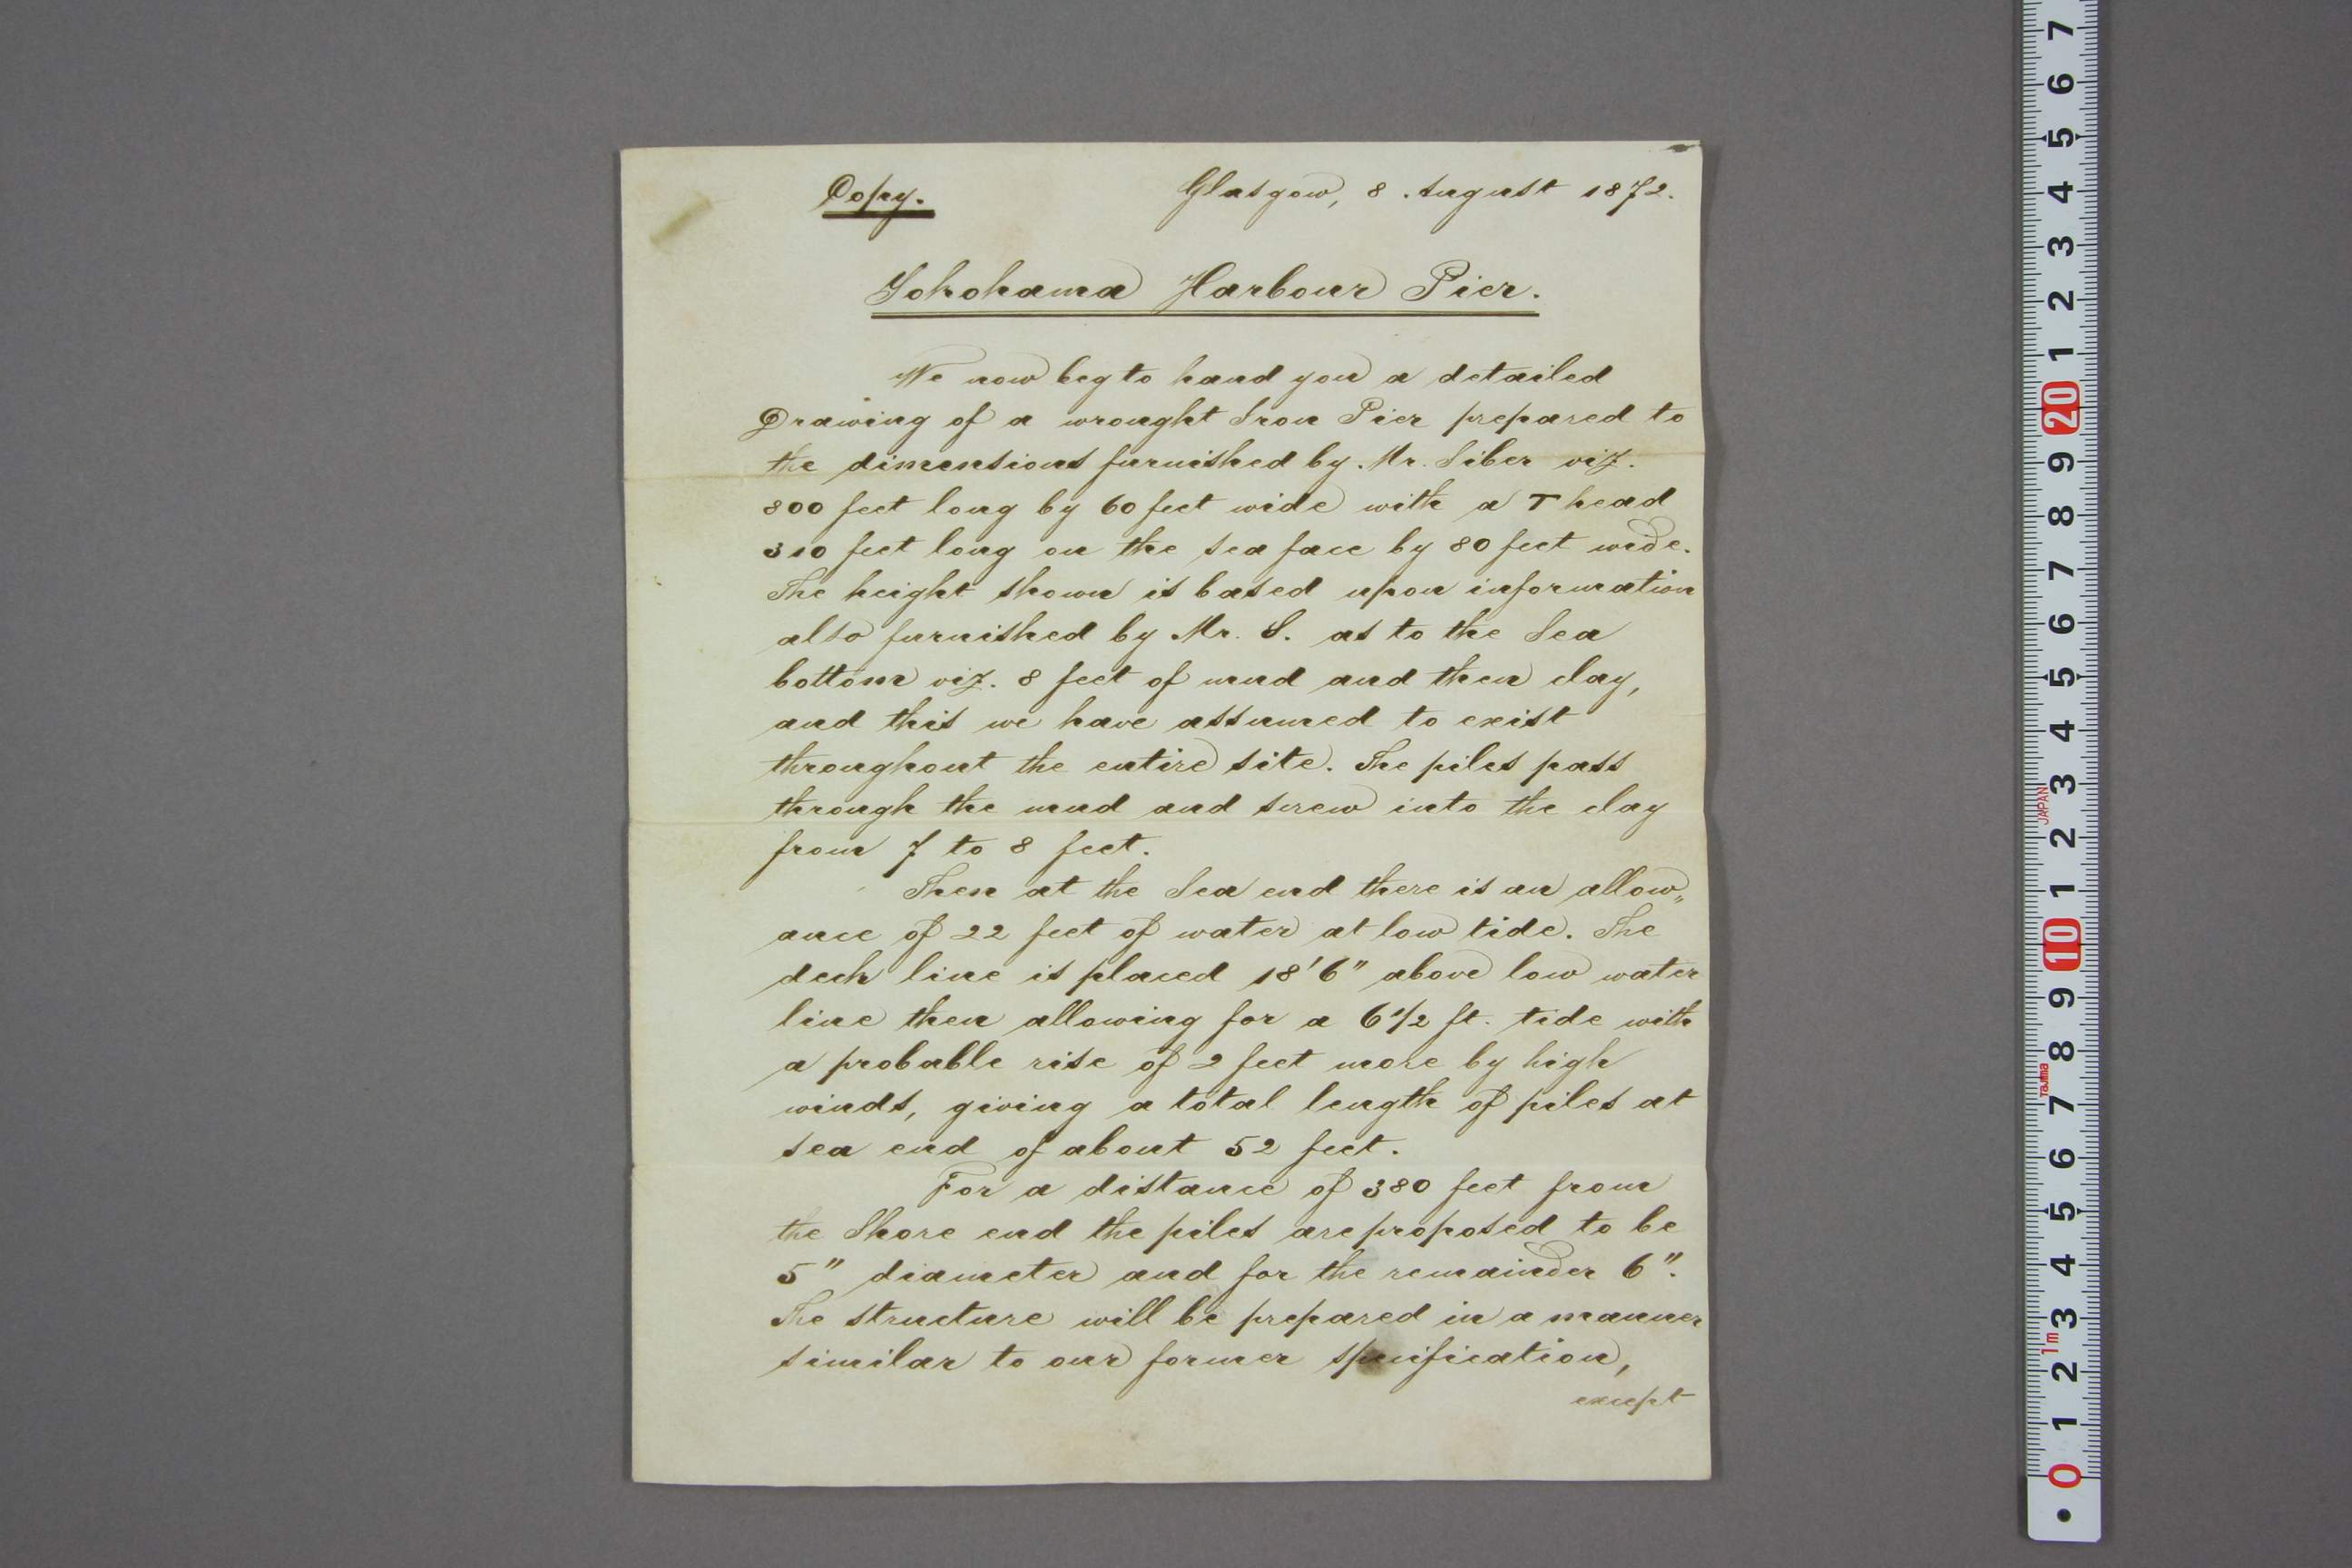 Copy. Glasgow, 8 August 1872.
Yokohama Harbour Pier.
We now beg to hand you a detailed
Drawing of a wrought Iron Pier prepared to
the dimensions furnished by Mr. Siber viz.
800 feet long by 60 feet wide with a T head
310 feet long on the sea face by 80 feet wide.
The height shown is based upon information
also furnished by Mr. S. as to the Sea
bottom viz. 8 feet of mud and then clay,
and this we have assumed to exist
throughout the entire site. The piles pass
through the mud and screw into the clay
from 7 to 8 feet.
Then at the Sea end there is an allow„
ance of 22 feet of water at low tide. The
deck line is placed 18'6" above low water
line then allowing for a 6 1/2 ft. tide with
a probable rise of 2 feet more by high
winds, giving a total length of piles at
sea end of about 52 feet.
For a distance of 380 feet from
the Shore end the piles are proposed to be
5" diameter and for the remainder 6".
The structure will be prepared in a manner
similar to our former specification,
except
7
6
5
4
3
2
1
20
9
8
7
6
5
4
3
JAPAN
2
1
10
9
8
Tajima
7
6
5
4
3
1m
2
1
0